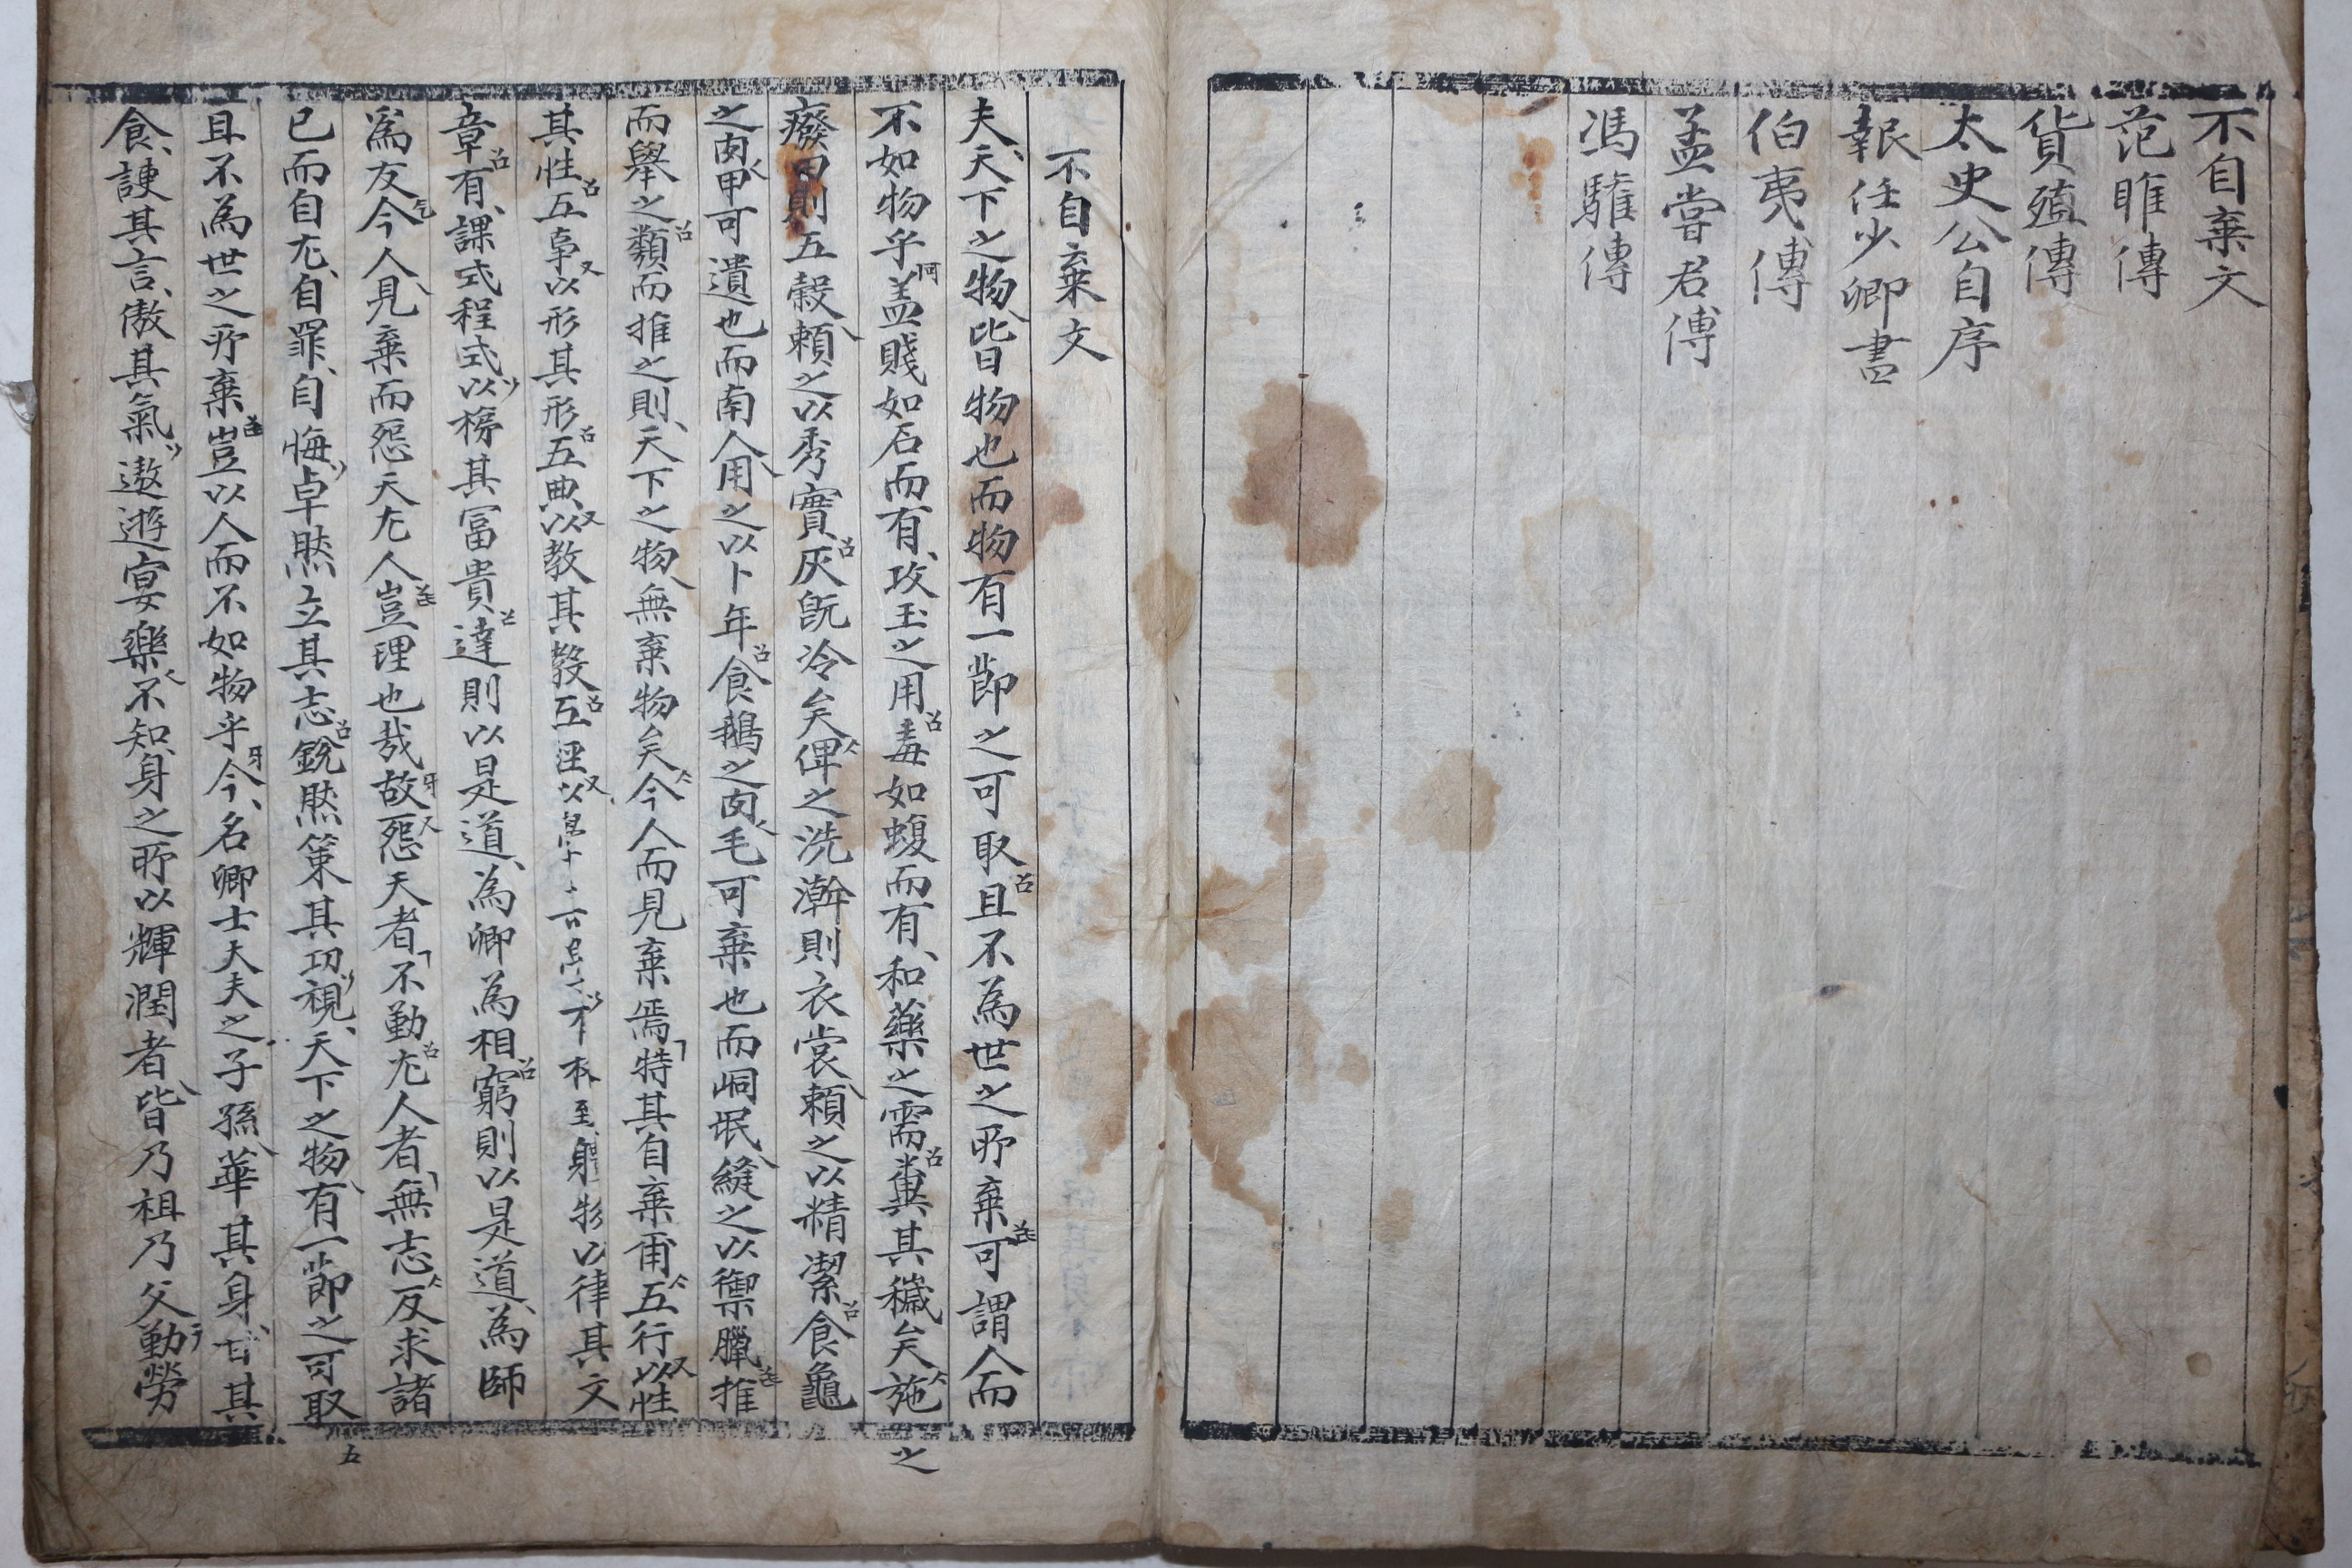 不自棄文
范睢傳
貨殖傳
太史公自序
報任少卿書
伯夷傳
孟嘗君傳
馮驩傳
不自棄文
夫天下之物皆物也而物有一節之可取且不為世之所棄可謂人而
不如物乎盖賤如石而有攻玉之用毒如蝮而有和藥之需糞其穢矣施之
癈田則五穀賴之以秀實灰旣冷矣俾之洗澣則衣裳賴之以精潔食龜
之肉甲可遺也而南人用之以卜年食鵝之肉毛可棄也而峒氓縫之以禦臘推
而舉之類而推之則天下之物無棄物矣今人而見棄焉特其自棄甭五行以性
其性五事以形其形五典以教其教五 以學 物以律其文
章有課式程式以榜其冨貴達則以是道為卿為相窮則以是道為師
爲友今人見棄而怨天尤人豈理也哉故怨天者不勤尤人者無志反求諸
已而自尤自罪自悔卓然立其志銳然策其功視天下之物有一節之可取
且不為世之所棄豈以人而不如物乎今名卿士大夫之子孫華其身甘其
食諛其言傲其氣遨遊宴樂不知身之所以輝潤者皆乃祖乃父勤勞
五